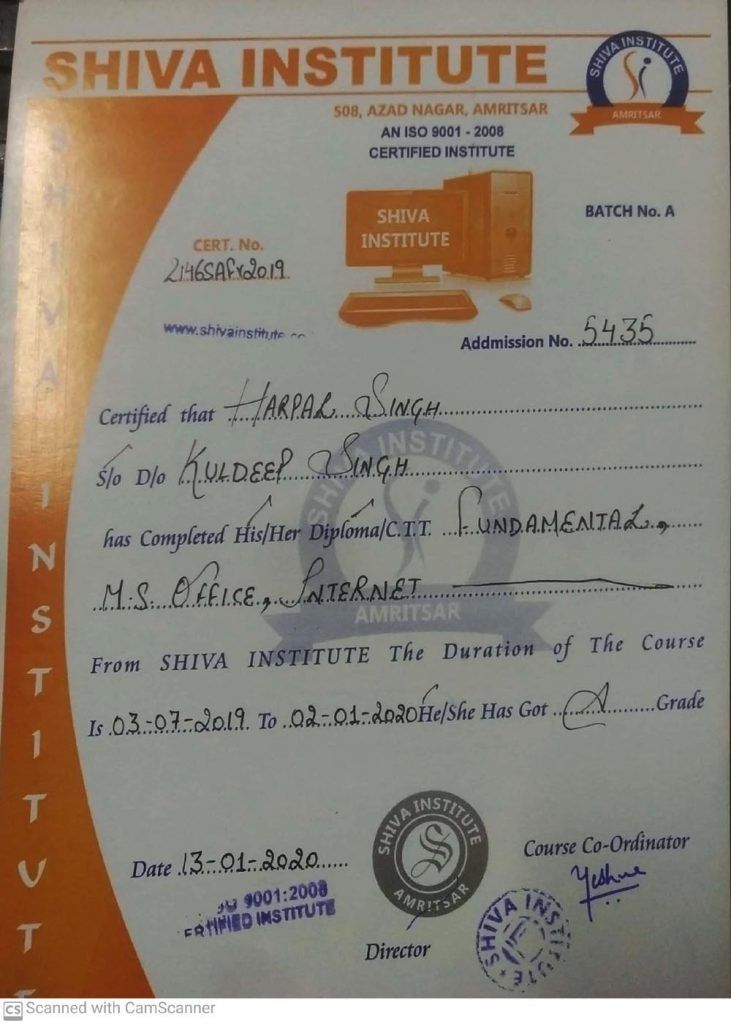 SHIVA INSTITUTE
SHIVA INSTITUTE
AMRITSAR
508, AZAD NAGAR, AMRITSAR
AN ISO 9001 - 2008
CERTIFIED INSTITUTE
SHIVA
INSTITUTE
BATCH No. A
CERT. No.
2146SAFY2019
www.shivainstitute
Addmission No. 5435
Certified that HARPAL SINGH
S/o D/o KULDEEP SINGH
has Completed His/Her Diploma/C.T.T. FUNDAMENTAL,
M.S. OFFICE, INTERNET
From SHIVA INSTITUTE The Duration of The Course
Is 03-07-2019 To 02-01-2020 He/She Has Got A Grade
SHIVA INSTITUTE
AMRITSAR
SHIVA INSTITUTE
S
AMRITSAR
Date 13-01-2020
9001:2008
INSTITUTE
Course Co-Ordinator
Director
SHIVA INSTITUTE
SHIVA INSTITUTE
CS Scanned with CamScanner